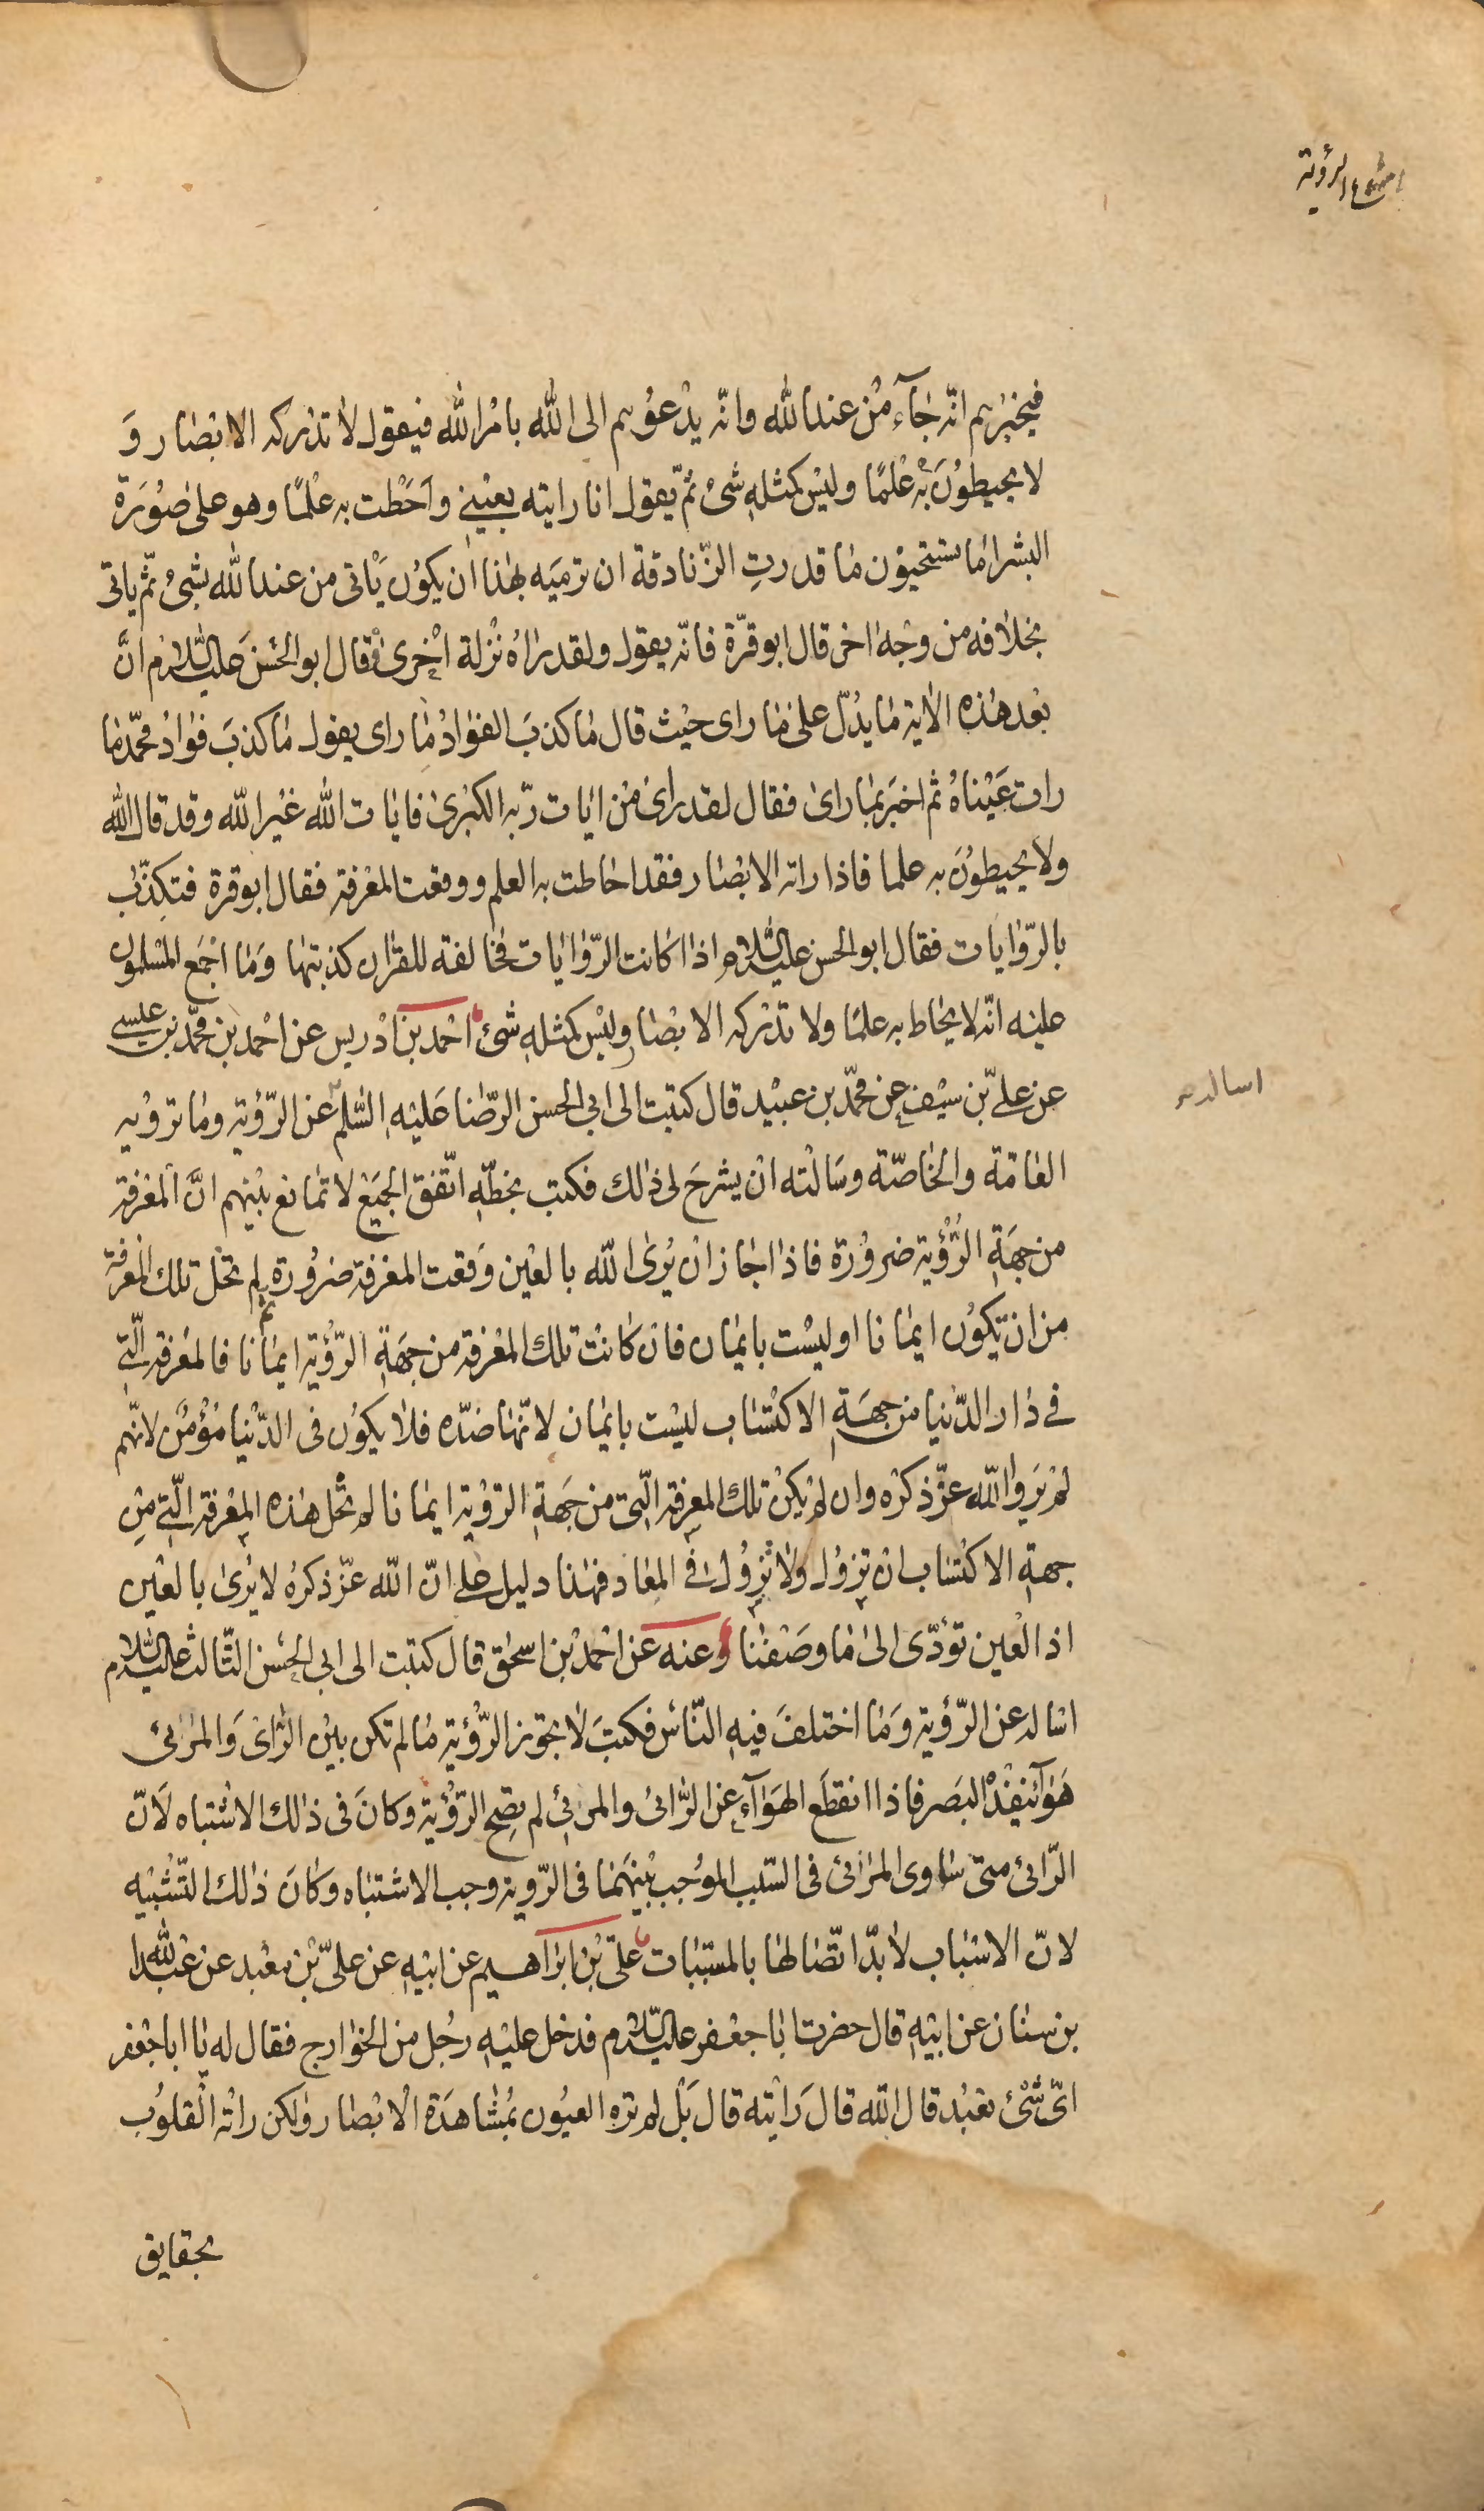 امتناع الرؤية
فيخبرهم انّه جٰآء مْن عند الله وانّه يدْعوُهم الى الله بامْر الله فيقول لٰا تدْركه الابْصٰار وَ
لا يحيطوُنَ بْه عْلمًا وليْس كمثلهِ شئ ثمّ يقول انا رايته بعيْنِي وَاحَطْت به عْلمًا وهو على صُوَرة
البشر امٰا تستحيوُن مٰا قدرتِ الزّنادقة ان ترميَه بهٰذا ان يكوُن يَاْتى من عند الله بشئ ثمّ ياتى
بخلٰافه من وجْه اخر قال ابو قرّة فانّه يقول ولقد رٰاهُ نْزلة اخْرىٰ فقال ابو الحسَن عليه السّلام انَّ
بعْد هٰذه الاٰية مٰا يدُلّ على مٰا راى حيْث قال مٰا كذبَ الفؤادُ مٰا راى يقول مٰا كذبَ فؤادُ محمّد مٰا
رات عَيْناهُ ثم اخبَر بمٰا رٰاى فقال لقد رٰاى مْن ايٰات ربّه الكبْرىٰ فايٰات الله غيْر الله وقد قال الله
ولا يحيطوُنَ به علما فاذا راته الابْصٰار فقد احٰاطت به العلم ووقعت المعْرفة فقال ابو قرة فتكذّب
بالرّوٰايات فقال ابو الحسن عليه السّلام اذا كانت الرّوٰايات مخٰالفة للقرٰان كذبتهٰا وَمٰا اجْمَع المسْلموُن
عليْه انّه لا يحٰاط به علمًا ولا تدْركه الابْصٰار وليْس كمثلهِ شئ احْمد بن ادْريس عن احْمد بن محمّد بن عيسى
عن علىّ بن سيْف عن محمّد بن عبيْد قال كتبت الى ابى الحسن الرّضٰا عَليْهِ السّلم عن الرّؤية ومٰا ترْويه
العٰامّة والخٰاصّة وسَالْته انْ يشرحَ لى ذٰلك فكتب بخطّهِ اتّفق الجميَع لا تمٰانع بيْنهم انَّ المعْرفة
من جهَةِ الرّؤْية ضروُرة فاذا جٰاز انْ يُرىٰ الله بالعْين وَقعت المعْرفة ضروُرة ثم لم تخْل تلك المعْرفة
من ان تكوُن ايمٰانا او ليسْت بايمٰان فان كٰانتْ تلك المعْرفة من جهَةِ الرّؤْية ايمٰانا فالمعْرفة الّتى
فى دٰار الدّنيا من جهَةِ الاكتْسٰاب ليسْت بايمٰان لانّهٰا ضدّه فلٰا يكوُن فى الدّنْيا مُؤْمن لانّهم
لمْ يَروا الله عزّ ذكرْه وان لم يكنْ تلك المعرفة الّتى من جَهةِ الرّؤْية ايمٰانا لم تخْل هٰذه المعْرفة الّتى مِن
جهةِ الاكتْسٰاب ان تزوُل ولٰا تزوُل فى المعٰاد فهٰذا دليل على انّ الله عزّ ذكرهُ لا يُرىٰ بالعْين
اذ العْين تؤدّى الىٰ مٰا وصَفنٰا وعنه عن احْمد بْن اسحٰق قال كتبت الى ابى الحسَن الثّالث عليه السّلام
اسٰاله عن الرّؤية وَمٰا اختلفَ فيهِ النّاس فكتبَ لٰا يجوُز الرّؤْية مٰا لم تكن بيْن الرّائى وَالمرْئى
هَوآء ينفُذْ البَصر فاذا انقطَع الهَوٰآء عن الرّائى والمرئى لم يصحّ الرّؤْية وكانَ فى ذٰلك الاشتْباه لَانّ
الرّائى متى سٰاوى المرْئى فى السّبب الموُجب بيْنهَمٰا فى الرّوية وجب الاشتبٰاه وَكانَ ذٰلك التّشْبيْه
لانّ الاسْبٰاب لٰا بدّ اتّصٰالهٰا بالمسبّبات علىّ بْن ابرٰاهيم عن ابيْهِ عن علىّ بْن معْبد عن عبْد الله
بن سنٰان عن ابيْهِ قال حضرت ابٰا جعْفر عليه السّلام فدخل عليْهِ رجُل من الخوٰارج فقال له يٰا ابا جعْفر
اىّ شئْ تعْبُد قال الله قالَ رَاْيته قال بَلْ لم ترهِ العيُون بمُشٰاهَدة الْابْصٰار ولٰكن راتْه القلوُب
اساله م
بحقايق